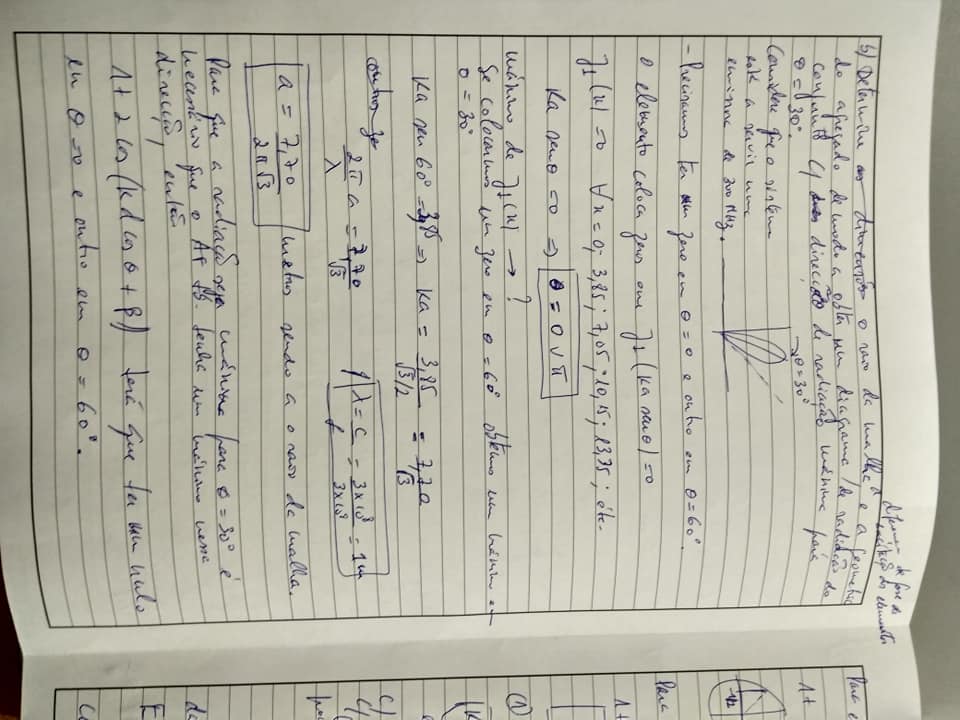 diferença de fase de
excitação dos elementos
b) Determine as dimensões o raio da malha e a geometria
do agregado de modo a obter um diagrama de radiação do
conjunto c/ direcção de radiação máxima para
θ = 30°.
θ = 30°
Considere que o sistema
está a servir uma
emissora de 300 MHz.
- Precisamos ter um zero em θ = 0 e outro em θ = 60°.
O elemento coloca zeros em J1 (Ka senθ) = 0
J1 (x) = 0 ∀x = 0; 3,85; 7,05; 10,15; 13,35; etc.
Ka senθ = 0 => θ = 0 ∨ π
máximo de J1(x) → ?
Se colocarmos um zero em θ = 60° obtemos um máximo em
θ = 30°
Ka sen 60° = 3,85 => Ka = 3,85/(√3/2) = 7,70/√3
2π/λ a = 7,70/√3 λ = c/f = 3×10⁸/3×10⁸ = 1m
a = 7,70/2π√3 metros sendo a o raio da malha.
Para que a radiação seja máxima para θ = 30° é
necessário que o AF tenha um máximo nessa
direcção, então
1 + 2 cos (Kd cos θ + β) terá que ter um nulo
em θ = 0 e outro em θ = 60°.
Para
1+
-1/2
Para
1+
①
(K
c/
c/
E